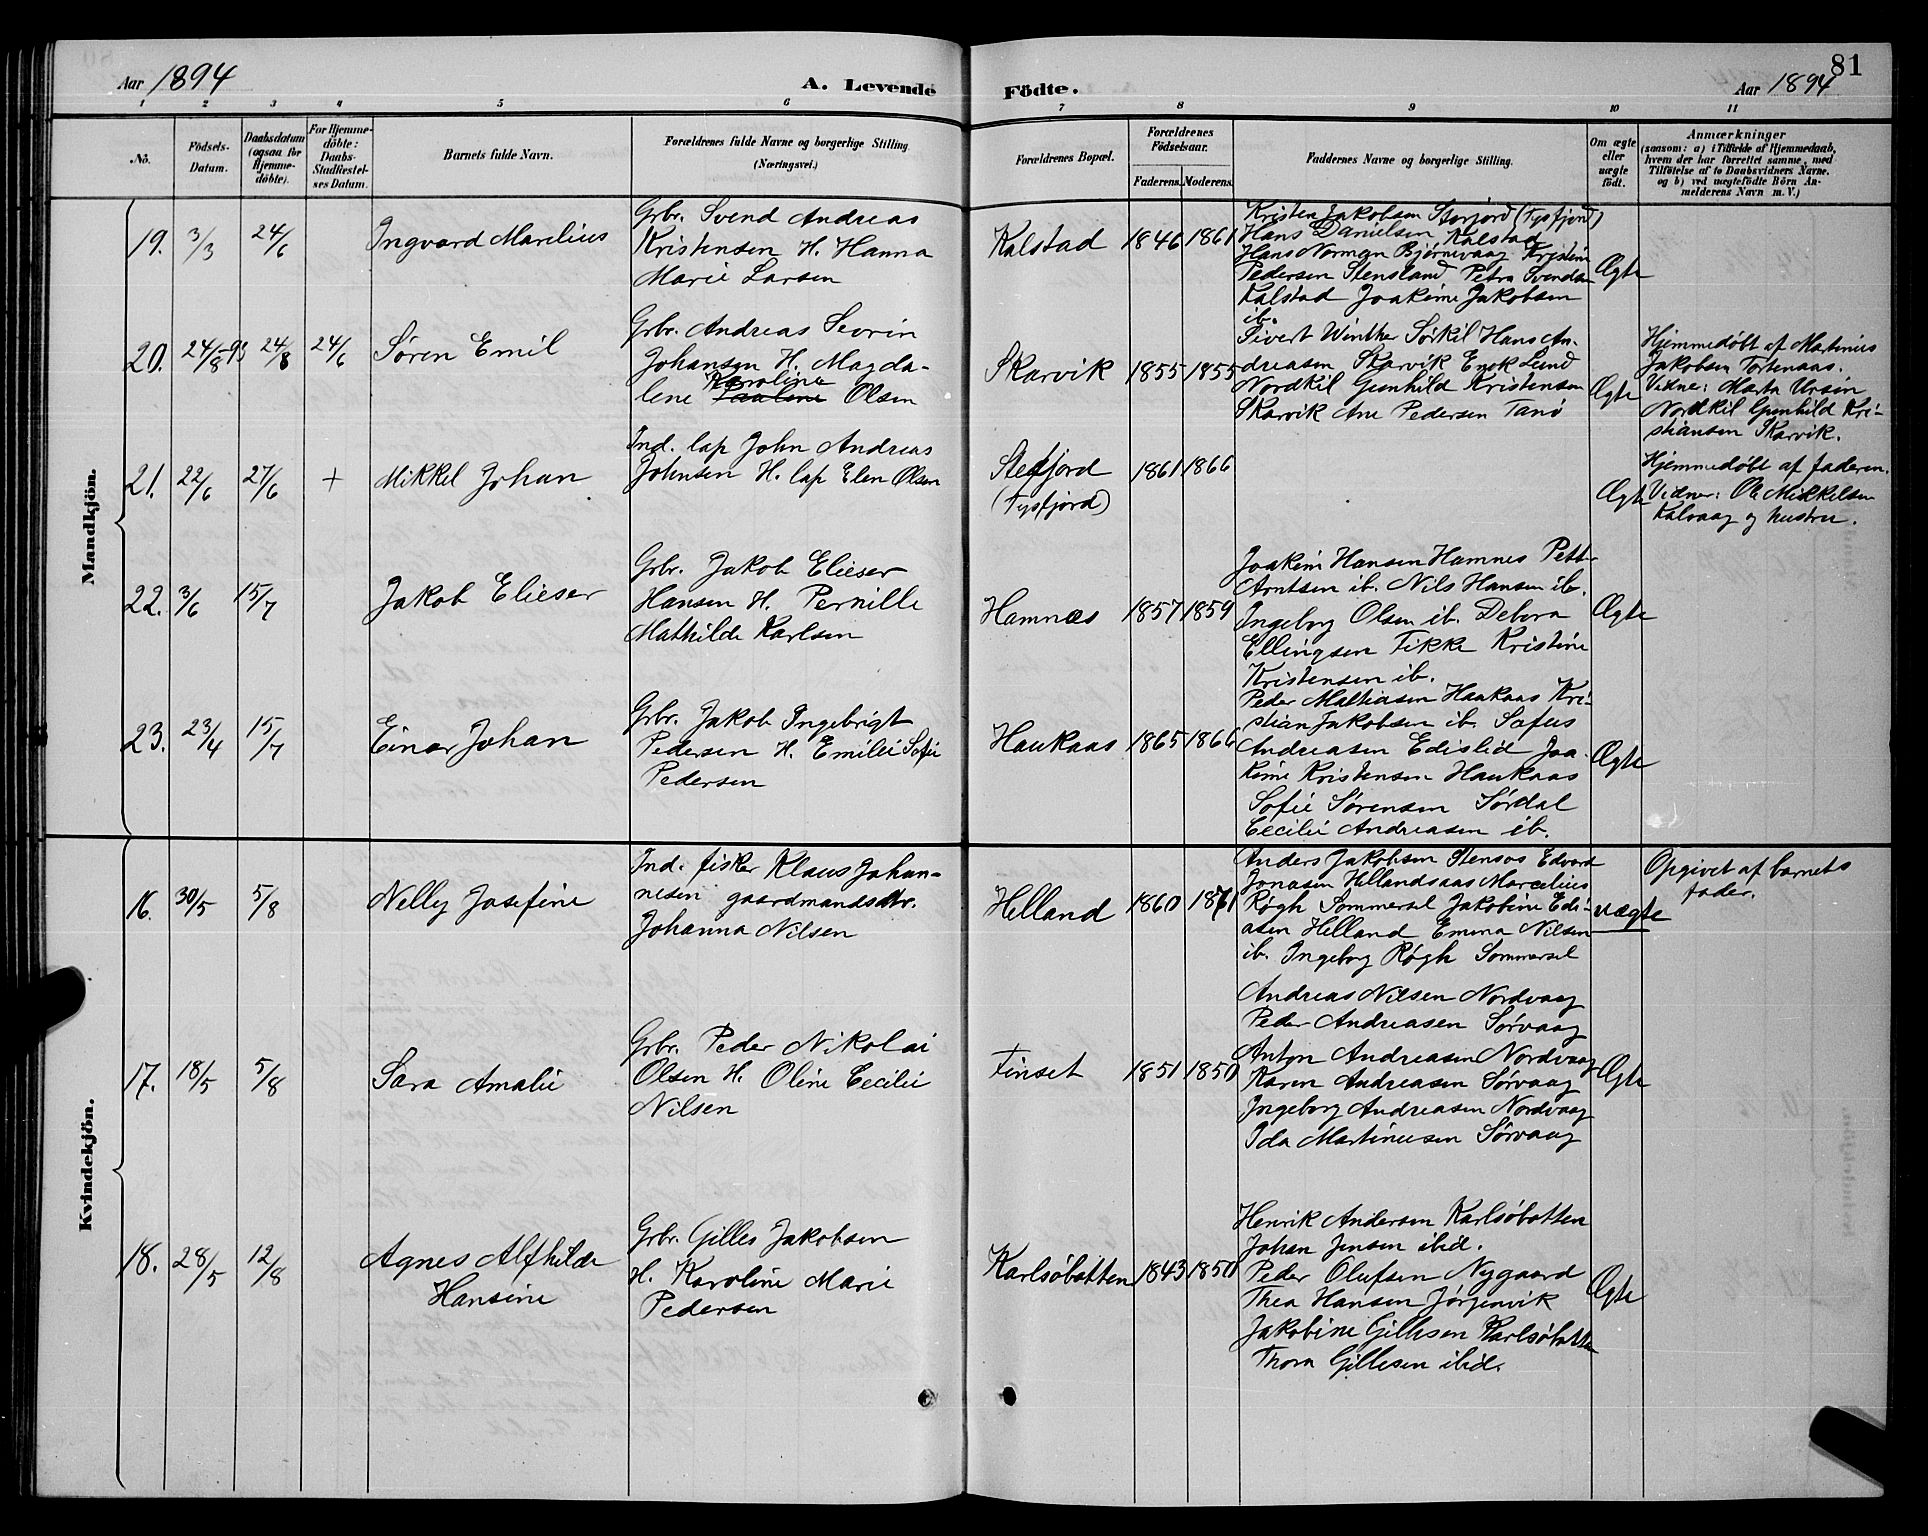 81
Aar 1894
A. Levende
Födte.
Aar 1894
1 2 3 4 5 6 7 8 9 10 11
No.
Födsels-
Datum.
Daabsdatum
(ogsaa for
Hjemme-
döbte).
For Hjemme-
döbte:
Daabs-
Stadfæstel-
ses Datum.
Barnets fulde Navn.
Forældrenes fulde Navne og borgerlige Stilling
(Næringsvei.)
Forældrenes Bopæl.
Forældrenes
Födselsaar.
Faderens.
Moderens.
Faddernes Navne og borgerlige Stilling.
Om ægte
eller
uægte
födt.
Anmærkninger
(saasom: a) i Tilfælde af Hjemmedaab,
hvem der har forrettet samme, med
Tilföielse af to Daabsvidners Navne.
og b) ved uægtefödte Börn An-
melderens Navn m. V.)
Mandkjön.
19. 3/3 24/6 Ingvard Marelius
Grbr. Svend Andreas
Kristensen H. Hanna
Marie Larsen
Kalstad 1846 1861
Kristen Jakobsen Storjord (Tysfjord)
Hans Danielsen Kalstad
Hans Norman Bjørnevaag Kristine
Pedersen Stensland Petra Svendsen
Kalstad Joakime Jakobsen
ib.
Ægte
20. 24/8-93 24/8 24/6 Søren Emil
Grbr. Andreas Sevrin
Johansen H. Magda-
Karoline
lene Pauline Olsen
Skarvik 1855 1855
Sivert Winther Sørkil Hans An-
dreasen Skarvik Enok Lund
Nordkil Gunhild Kristensen
Skarvik Ane Pedersen Tanø
Ægte
Hjemmedøbt af Martinus
Jakobsen Tortenaas.
Vidne: Marta Ursin
Nordkil Gunhild Kri-
stiansen Skarvik.
21. 22/6 27/6 + Mikkel Johan
Ind. lap John Andreas
Johnsen H. lap Elen Olsen
Stefjord
(Tysfjord)
1861 1866
Ægte
Hjemmedøbt af faderen.
Vidner: Ole Mikkelsen
Kalvaag og hustru.
22. 3/6 15/7 Jakob Elieser
Grbr. Jakob Elieser
Hansen H. Pernille
Mathilde Karlsen
Hamnes 1857 1859
Joakim Hansen Hamnes Petter
Arntsen ib. Nils Hansen ib.
Ingeborg Olsen ib. Debora
Ellingsen Fikke Kristine
Kristensen ib.
Ægte
23. 23/4 15/7 Einar Johan
Grbr. Jakob Ingebrigt
Pedersen H. Emilie Sofie
Pedersen
Haukaas 1865 1866
Peder Mathiasen Haukaas Kri-
stian Jakobsen ib. Sofus
Andreasen Edislid Joa-
kime Kristensen Haukaas
Sofie Sørensen Sørdal
Cecilie Andreasen ib.
Ægte
Kvindekjön.
16. 30/5 5/8 Nelly Josefine
Ind. fisker Klaus Johan-
nesen gaardmandsdtr.
Johanna Nilsen
Helland 1860 1871
Anders Jakobsen Stensos Edvard
Jonasen Hellandsaas Marcelius
Røgh Sommersel Jakobine Edi-
asen Helland Emma Nilsen
ib. Ingeborg Røgh Sommersel
uægte
Opgivet af barnets
fader.
17. 18/5 5/8 Sara Amalie
Grbr. Peder Nikolai
Olsen H. Oline Cecilie
Nilsen
Finset 1851 1850
Andreas Nilsen Nordvaag
Peder Andreasen Sørvaag
Anton Andreasen Nordvaag
Karen Andreasen Sørvaag
Ingeborg Andreasen Nordvaag
Ida Martinusen Sørvaag
Ægte
18. 28/5 12/8 Agnes Alfhilde
Hansine
Grbr. Gilles Jakobsen
H. Karoline Marie
Pedersen
Karlsøbotten 1843 1850
Henrik Andersen Karlsøbotten
Johan Jensen ibid.
Peder Olufsen Nygaard
Thea Hansen Jørgenvik
Jakobine Gillesen Karlsøbotten
Thora Gillesen ibid.
Ægte